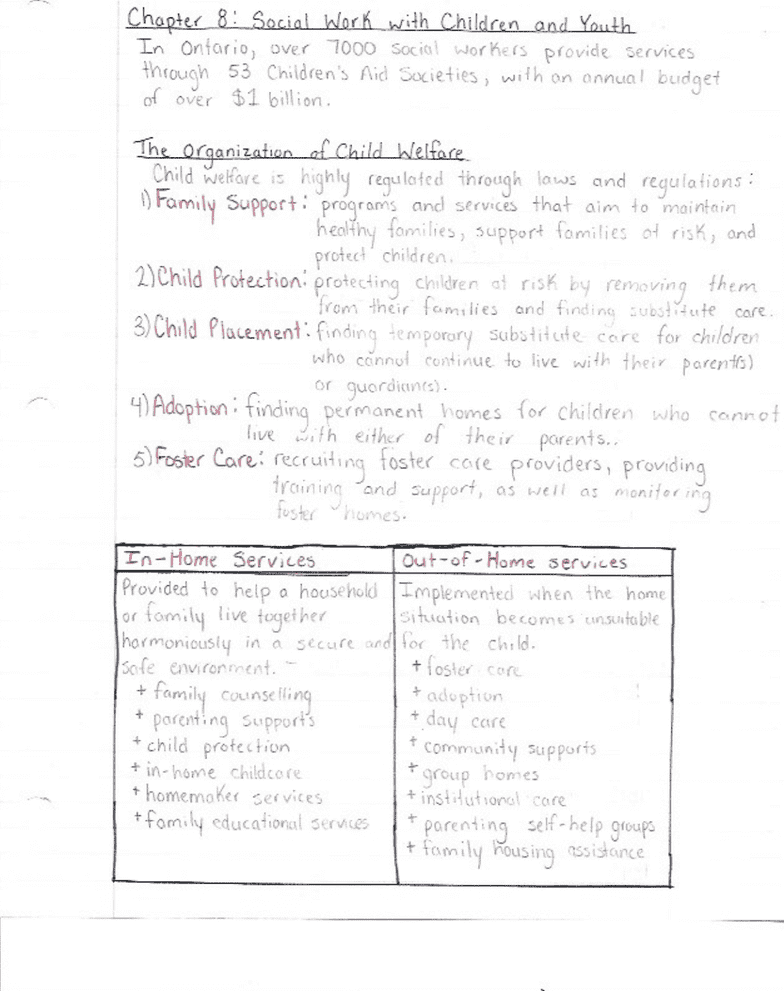 Chapter 8: Social Work with Children and Youth
In Ontario, over 7000 social workers provide services
through 53 Children's Aid Societies, with an annual budget
of over $1 billion.
The Organization of Child Welfare
Child welfare is highly regulated through laws and regulations:
1) Family Support: programs and services that aim to maintain
healthy families, support families at risk, and
protect children.
2) Child Protection: protecting children at risk by removing them
from their families and finding substitute care.
3) Child Placement: finding temporary substitute care for children
who cannot continue to live with their parent(s)
or guardian(s).
4) Adoption: finding permanent homes for children who cannot
live with either of their parents..
5) Foster Care: recruiting foster care providers, providing
training and support, as well as monitoring
foster homes.
In-Home Services
Provided to help a household
or family live together
harmoniously in a secure and
safe environment.
+ family counselling
+ parenting supports
+ child protection
+ in-home childcare
+ homemaker services
+ family educational services
Out-of-Home services
Implemented when the home
situation becomes unsuitable
for the child.
+ foster care
+ adoption
+ day care
+ community supports
+ group homes
+ institutional care
+ parenting self-help groups
+ family housing assistance